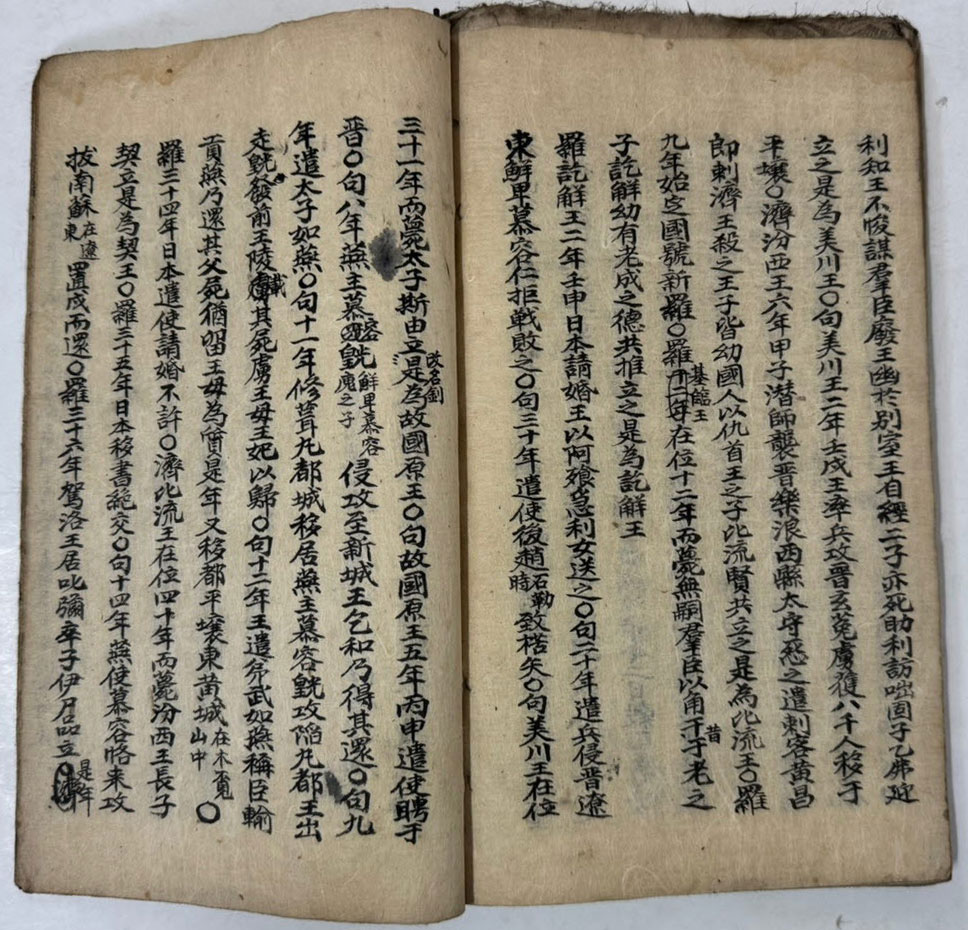 利知王不悛謀羣臣廢王幽於別室王自經二子亦死助利訪咄固子乙弗延
立之是為美川王〇句美川王二年壬戌王率兵攻晉玄菟虜獲八千人移于
平壤〇濟汾西王六年甲子潛師襲晉樂浪西縣太守惡之遣刺客黃昌
郎刺濟王殺之王子皆幼國人以仇首王之子比流賢共立之是為比流王〇羅
九年始定國號新羅〇羅基臨王在位十二年而薨無嗣羣臣以角干昔于老之
子訖解幼有老成之德共推立之是為訖解王
羅訖解王二年壬申日本請婚王以阿飧急利女送之〇句二十年遣兵侵晉遼
東鮮卑慕容仁拒戰敗之〇句三十年遣使後趙石勒時致楛矢〇句美川王在位
三十一年而薨太子斯由立改名劉是為故國原王〇句故國原王五年丙申遣使聘于
晉〇句八年燕王慕容皝鮮卑慕容廆之子侵攻至新城王乞和乃得其還〇句九
年遣太子如燕〇句十一年修葺丸都城移居燕王慕容皝攻陷丸都王出
走皝發前王陵載其死虜王母王妃以歸〇句十二年王遣弟武如燕稱臣輸
貢燕乃還其父死猶留王母為質是年又移都平壤東黃城在木覓山中〇
羅三十四年日本遣使請婚不許〇濟比流王在位四十年而薨汾西王長子
契立是為契王〇羅三十五年日本移書絶交〇句十四年燕使慕容恪来攻
拔南蘇在遼東置戍而還〇羅三十六年駕洛王居叱彌卒子伊尸品立〇是年